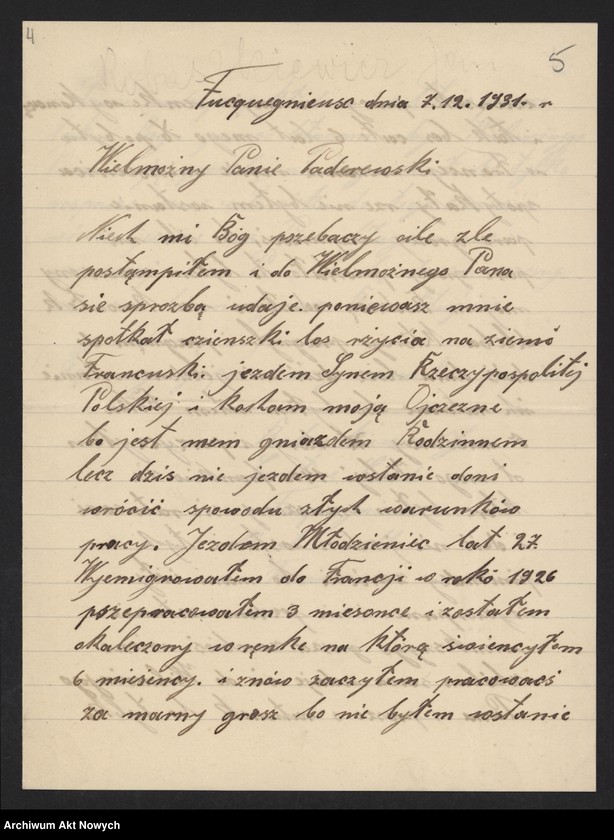 4
5
Fucquegnieusc dnia 7.12.1931. r
Wielmożny Panie Paderewski
Niech mi Bóg przebaczy oile zle
postąmpiłem i do Wielmożnego Pana
sie sprozbą udaje. poniewasz mnie
spotkał czienszki los rzycia na ziemó
Francuski. jezdem Synem Rzeczypospolitej
Polskiej i kocham moją Ojczezne
bo jest mem gniazdem Rodzinnem
lecz dziś nie jezdem wstanie doni
wrócić spowodu złych warunków
pracy. Jezdem Młodzieniec lat 27.
Wyemigrowałem do Francji w rokó 1926
przepracowałem 3 miesonce i zostałem
okaleczony w ręnke na którą świencyłem
6 miesincy. i znów zaczyłem pracować
za marny grosz bo nie byłem wstanie
Archiwum Akt Nowych